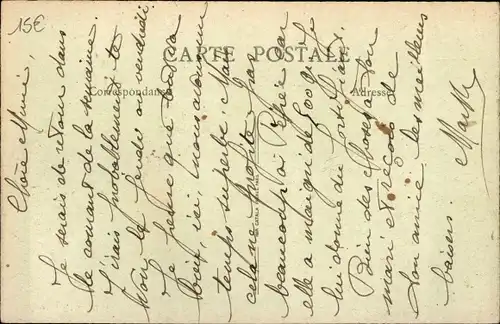 15€
CARTE POSTALE
Correspondance
Adresse
Chère Mimi,
Je serais de retour dans
le courant de la semaine.
J'irais probablement te
voir le jeudi ou vendredi.
Je pense que tout va
bien, ici, nous avons un
temps superbe. Mais
cela ne profite pas
beaucoup à car
elle a maigri de 500g.
lui donne du
Bien des choses à ton
mari et reçois de
ton amie les meilleurs
baisers.